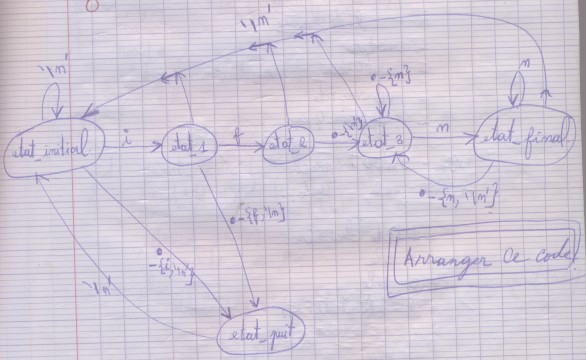 '\n'
'\n'
n
•-{n}
etat_initial
i
etat_1
f
etat_2
•-{'\n'}
etat_3
n
etat_final
•-{n, '\n'}
•-{f, '\n}
•-{i, '\n'}
'\n'
etat_puit
Arranger Ce code